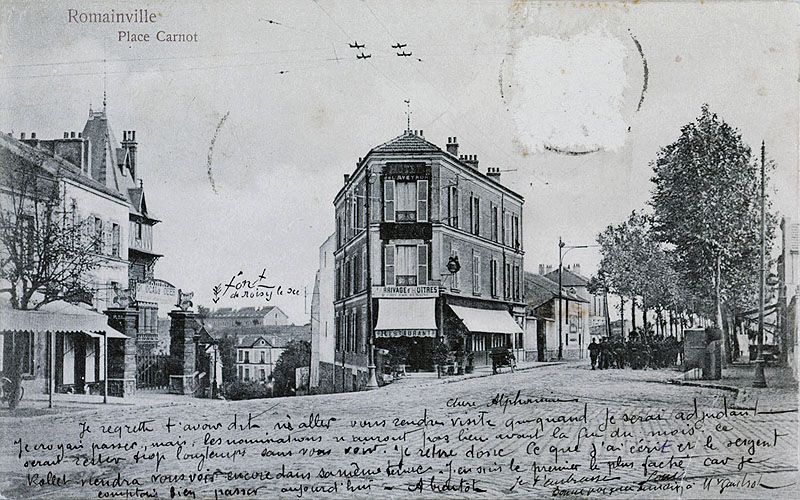 Romainville
Place Carnot
HOTEL
DE L'AVEYRON
ARRIVAGE D'HUITRES
RESTAURANT
fort
de Noisy le sec
chère Alphonsine
Je regrette t'avoir dit n'aller vous rendre visite que quand je serai adjudant
Je croyais passer, mais, les nominations n'auront pas lieu avant la fin du mois, ce
serait rester trop longtemps sans vous voir. Je retire donc ce que j'ai écrit et le sergent
Rollet viendra vous voir encore dans sa même tenue. J'en suis le premier le plus faché car je
comptais bien passer aujourd'hui – A bientôt Je t'embrasse